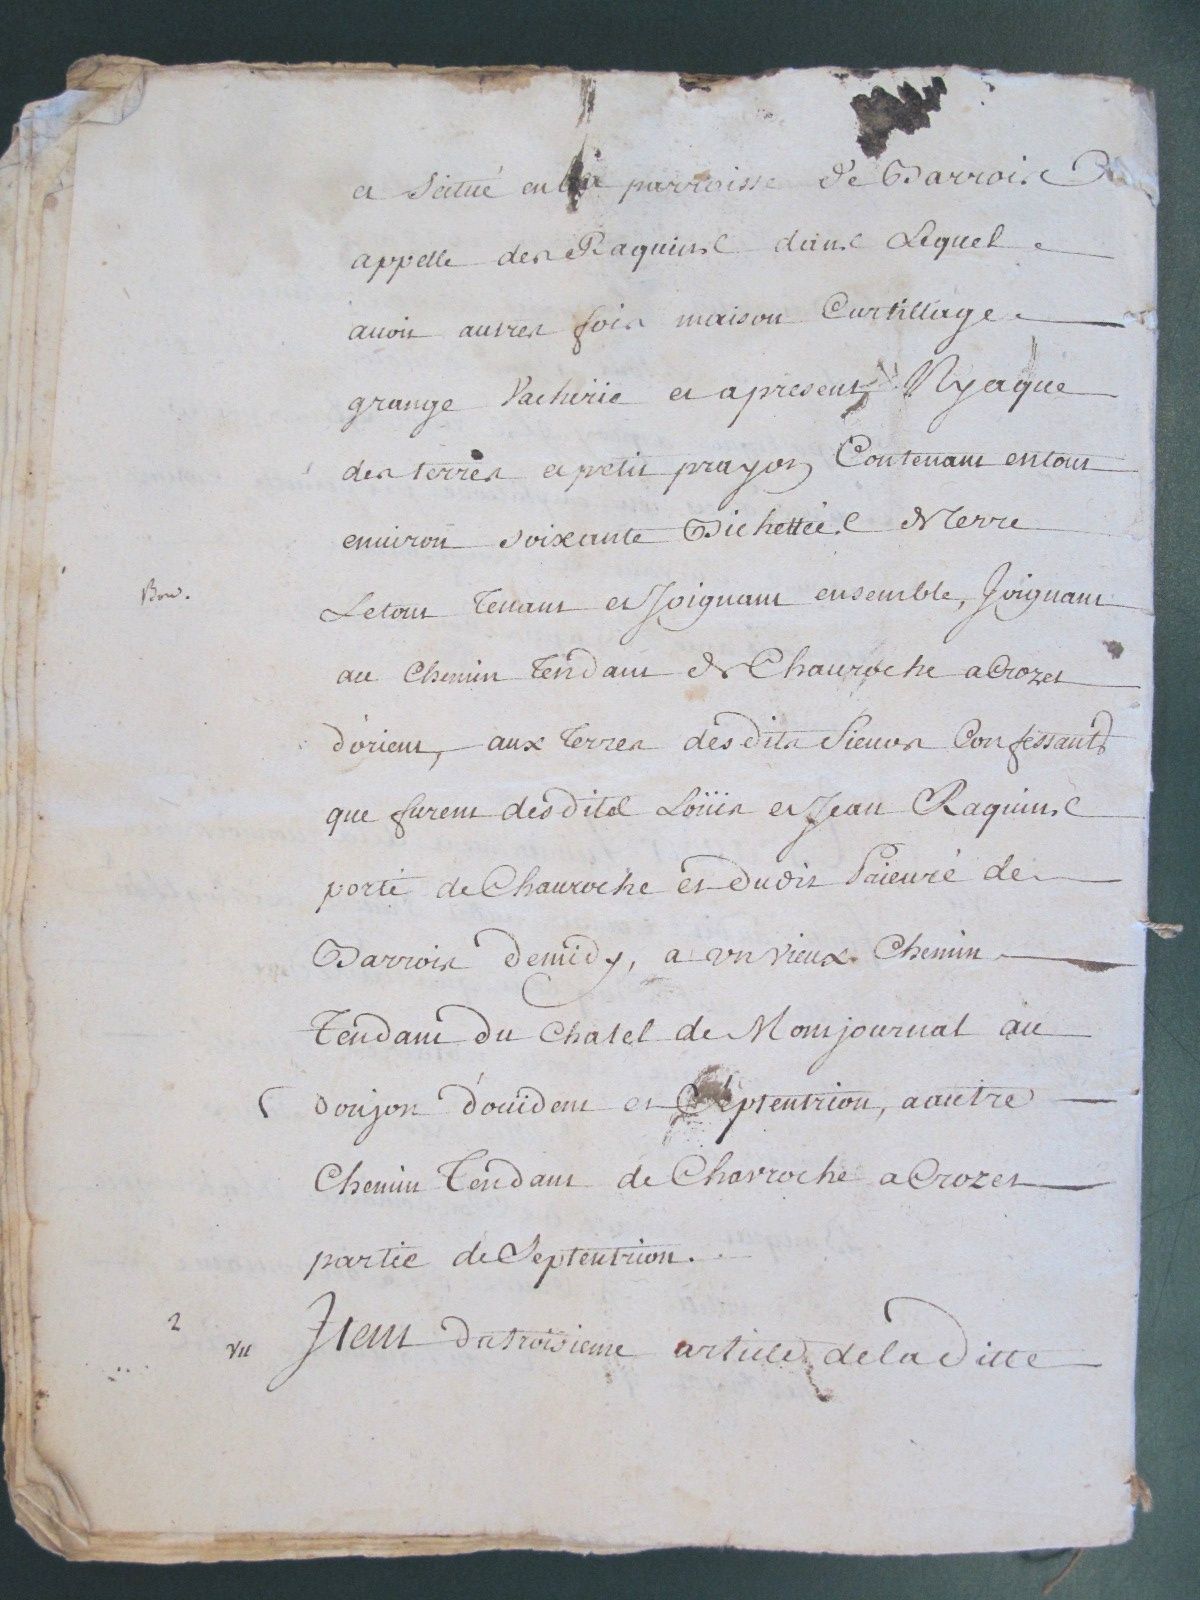 et scitué en la parroisse de Barrois
appellé des Raquins dans Lequel
avoit autres fois maison Curtillage
grange Vacherie et apresent Nyaque
des terres et petit prayon Contenant entout
environ soixante Bichettées de Terre
Bon.
Letout Tenant et Joignant ensemble, Joignant
au Chemin Tendant de Chauroche a Crozet
d'orient, aux Terres desdits Sieurs Confessants
que furent desdits Loüis et Jean Raquins
porté de Chauroche et dudit Prieuré de
Barrois demidy, a un vieux Chemin
Tendant du Chatel de Montjournal au
donjon d'occident et Septentrion, a autre
Chemin Tendant de Chavroche a Crozet
partie de Septentrion.
2
vu Item du troisieme article de la Ditte